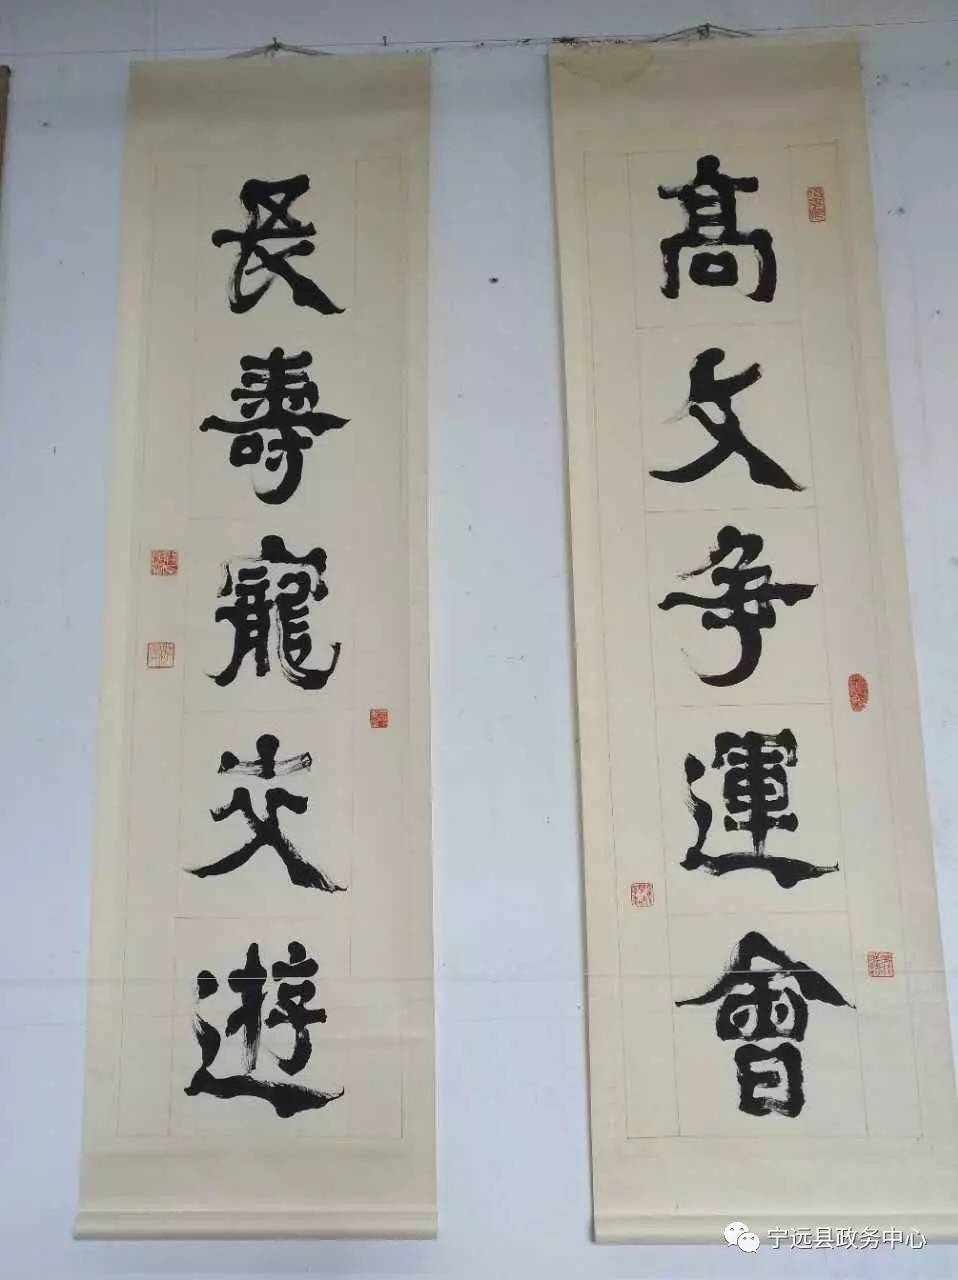 高文争運會
長壽寵交遊
宁远县政务中心